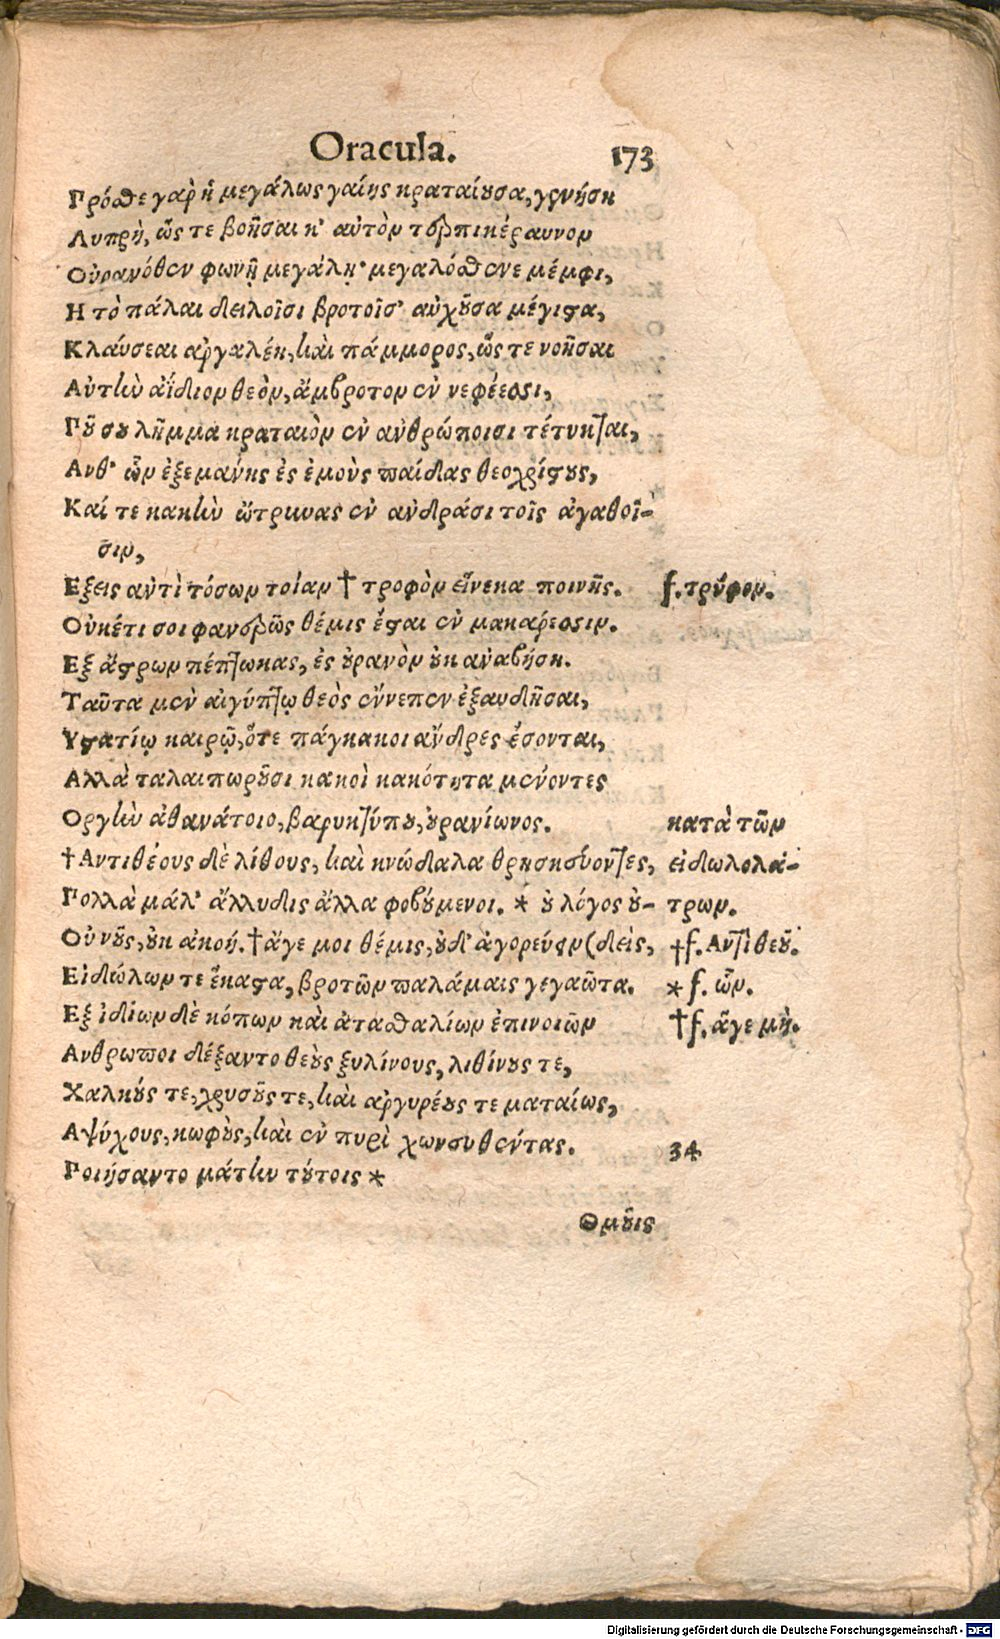 Oracula. 173
Πρόσθε γὰρ ἡ μεγάλως γαίης κραταίουσα, γενήση
Λυπρὴ, ὥς τε βοῆσαι κ' αὐτὸν τερπικέραυνον
Οὐρανόθεν φωνῇ μεγάλῃ· μεγαλόσθενε μέμφι,
Η τὸ πάλαι δειλοῖσι βροτοῖσ' αὐχοῦσα μέγιστα,
Κλαύσεαι ἀργαλέη, καὶ πάμμορος, ὥς τε νοῆσαι
Αὐτὴν ἀΐδιον θεὸν, ἄμβροτον ἐν νεφέεσσι,
Ποῦ σου λῆμμα κραταιὸν ἐν ἀνθρώποισι τέτυκται,
Ανθ' ὧν ἐξεμάνης ἐς ἐμοὺς παίδας θεοχρίστους,
Καί τε κακὴν ὤτρυνας ἐν ἀνδράσι τοῖς ἀγαθοῖ-
σιν,
Εξεις ἀντὶ τόσων τοίαν † τροφὸν εἵνεκα ποινῆς. f. τρύφον.
Οὐκέτι σοι φανερῶς θέμις ἔσται ἐν μακάρεσσιν.
Εξ ἄστρων πέπτωκας, ἐς οὐρανὸν οὐκ ἀναβήση.
Ταῦτα μὲν αἰγύπτῳ θεὸς ἔννεπεν ἐξαυδῆσαι,
Υστατίῳ καιρῷ, ὅτε πάγκακοι ἄνδρες ἔσονται,
Αλλὰ ταλαιπωροῦσι κακοὶ κακότητα μένοντες
Οργὴν ἀθανάτοιο, βαρυκτύπου, οὐρανίωνος. κατὰ τῶν
† Αντιθέους δὲ λίθους, καὶ κνώδαλα θρησκεύοντες, εἰδωλολα-
Πολλὰ μάλ' ἄλλυδις ἄλλα φοβούμενοι. * οὐ λόγος οὐ- τρων.
Οὐ νοῦς, οὐκ ἀκοή. † ἄγε μοι θέμις, οὐδ' ἀγορεύειν (δεὶς, † f. Αντιθεοῦ.
Εἰδώλων τε ἕκαστα, βροτῶν παλάμαις γεγαῶτα. * f. ὧν.
Εξ ἰδίων δὲ κόπων καὶ ἀτασθαλίων ἐπινοιῶν † f. ἅγε μὴ.
Ανθρωποι δέξαντο θεοὺς ξυλίνους, λιθίνους τε,
Χαλκούς τε, χρυσοῦς τε, καὶ ἀργυρέους τε ματαίως,
Αψύχους, κωφοὺς, καὶ ἐν πυρὶ χωνευθέντας. 34
Ποιήσαντο μάτην τούτοις *
Θμοῦις
Digitalisierung gefördert durch die Deutsche Forschungsgemeinschaft - DFG